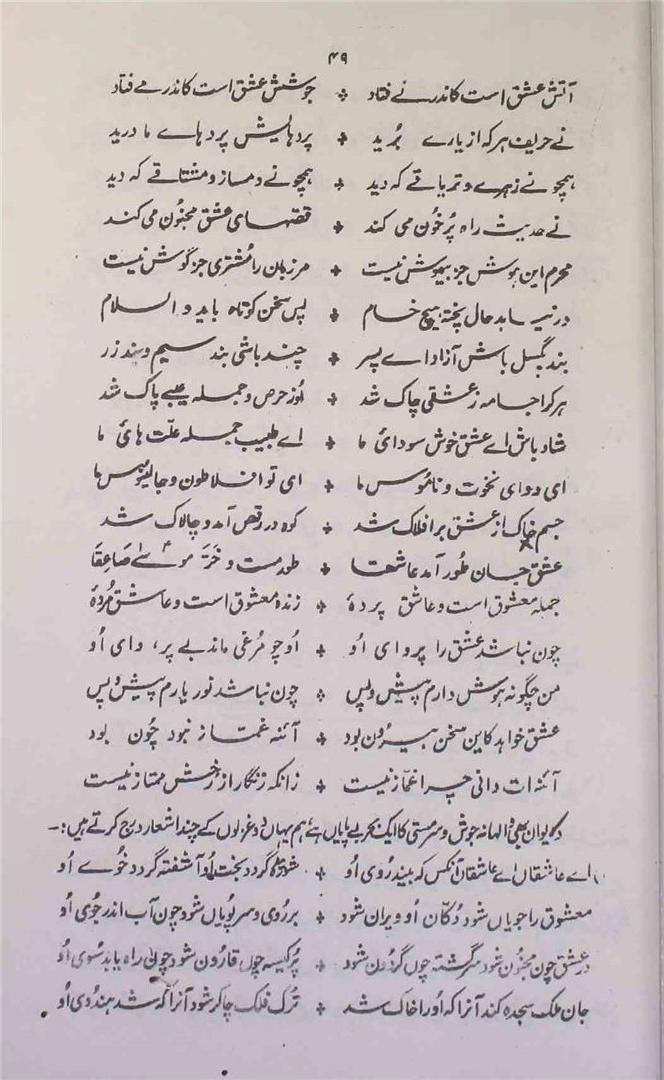 ۴۹
آتش عشق است کاندر نے فتاد ٭ جوشش عشق است کاندر مے فتاد
نے حریف ہر کہ از یارے بُرید ٭ پردہایش پردہاے ما درید
ہمچو نے زہرے و تریاقے کہ دید ٭ ہمچو نے دمساز و مشتاقے کہ دید
نے حدیث راہ پُر خُون می کند ٭ قصہای عشق مجنُون می کند
محرم این ہوش جز بیہوش نیست ٭ مر زبان را مُشتری جز گوش نیست
در نیابد حال پختہ ہیچ خام ٭ پس سخن کوتاہ باید و السلام
بند بگسل باش آزاد اے پسر ٭ چند باشی بند سیم و بند زر
ہر کرا جامہ ز عشقی چاک شد ٭ اُو ز حرص و جملہ عیبے پاک شد
شاد باش اے عشق خوش سودائ ما ٭ اے طبیب جملہ علّت ہائ ما
ای دوای نخوت و نامُوس ما ٭ ای تو افلاطون و جالینُوس ما
جسم خاک از عشق بر افلاک شد ٭ کوہ در رقص آمد و چالاک شد
عشق جان طُور آمد عاشقا ٭ طور مست و خَرَّ موسٰے صَاعِقَا
جملہ معشوق است و عاشق پردۂ ٭ زندہ معشوق است و عاشق مُردۂ
چون نباشد عشق را پروای اُو ٭ اُو چو مُرغی ماند بے پر، وای اُو
من چگونہ ہوش دارم پیش و پس ٭ چون نباشد نور یارم پیش و پس
عشق خواہد کاین سخن بیرُون بود ٭ آئنہ غمّاز نبود چُون بود
آئنہ ات دانی چرا غمّاز نیست ٭ زانکہ زنگار از رُخش ممتاز نیست
دیوان بھی والہانہ جوش و سرمستی کا ایک بحرِ بے پایاں ہے، ہم یہاں دو غزلوں کے چند اشعار درج کرتے ہیں:۔
اے عاشقاں اے عاشقان آنکس کہ بیند رُوی اُو ٭ شوریدہ گردد بخت اُو آشفتہ گردد خُوے اُو
معشوق را جویاں شود دُکّان اُو ویران شود ٭ بر رُوی و سر پُویاں شود چون آب اندر جُوی اُو
در عشق چون مجنُون شود سرگشتہ چوں گردُون شود ٭ پُر کیسہ چوں قارُون شود چوں راہ یابد سُوی اُو
جان ملک سجدہ کند آنرا کہ اُو را خاک شد ٭ تُرک فلک چاکر شود آنرا کہ شد ہندُوی اُو